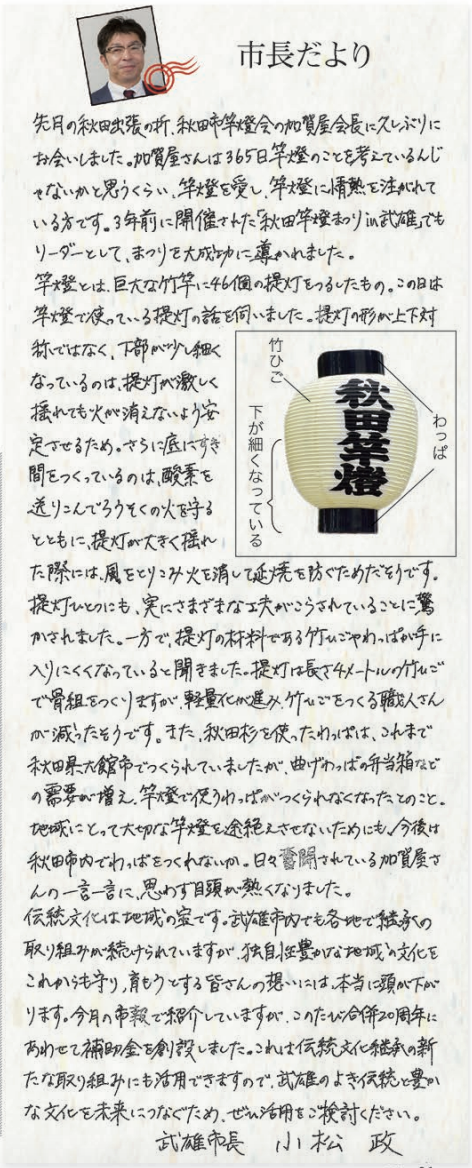 市長だより
先月の秋田出張の折、秋田市竿燈会の加賀屋会長に久しぶりに
お会いしました。加賀屋さんは365日竿燈のことを考えているんじ
ゃないかと思うくらい、竿燈を愛し、竿燈に情熱を注がれて
いる方です。3年前に開催された「秋田竿燈まつりin武雄」でも
リーダーとして、まつりを大成功に導かれました。
竿燈とは、巨大な竹竿に46個の提灯をつるしたもの。この日は
竿燈で使っている提灯の話を伺いました。提灯の形が上下対
称ではなく、下部が少し細く
なっているのは、提灯が激しく
揺れても火が消えないよう安
定させるため。さらに底にすき
間をつくっているのは、酸素を
送りこんでろうそくの火を守る
とともに、提灯が大きく揺れ
た際には、風をとりこみ火を消して延焼を防ぐためだそうです。
竹ひご
わっぱ
下が細くなっている
秋田竿燈
提灯ひとつにも、実にさまざまな工夫がこらされていることに驚
かされました。一方で、提灯の材料である竹ひごやわっぱが手に
入りにくくなっていると聞きました。提灯は長さ4メートルの竹ひご
で骨組をつくりますが、軽量化が進み、竹ひごをつくる職人さん
が減ったそうです。また、秋田杉を使ったわっぱは、これまで
秋田県大館市でつくられていましたが、曲げわっぱの弁当箱など
の需要が増え、竿燈で使うわっぱがつくられなくなったとのこと。
地域にとって大切な竿燈を途絶えさせないためにも、今後は
秋田市内でわっぱをつくれないか。日々奮闘されている加賀屋さ
んの一言一言に、思わず目頭が熱くなりました。
伝統文化は地域の宝です。武雄市内でも各地で継承の
取り組みが続けられていますが、独自性豊かな地域の文化を
これからも守り、育もうとする皆さんの想いには、本当に頭が下が
ります。今月の市報で紹介していますが、このたび合併20周年に
あわせて補助金を創設しました。これは伝統文化継承の新
たな取り組みにも活用できますので、武雄のよき伝統と豊か
な文化を未来につなぐため、ぜひ活用をご検討ください。
武雄市長 小松 政